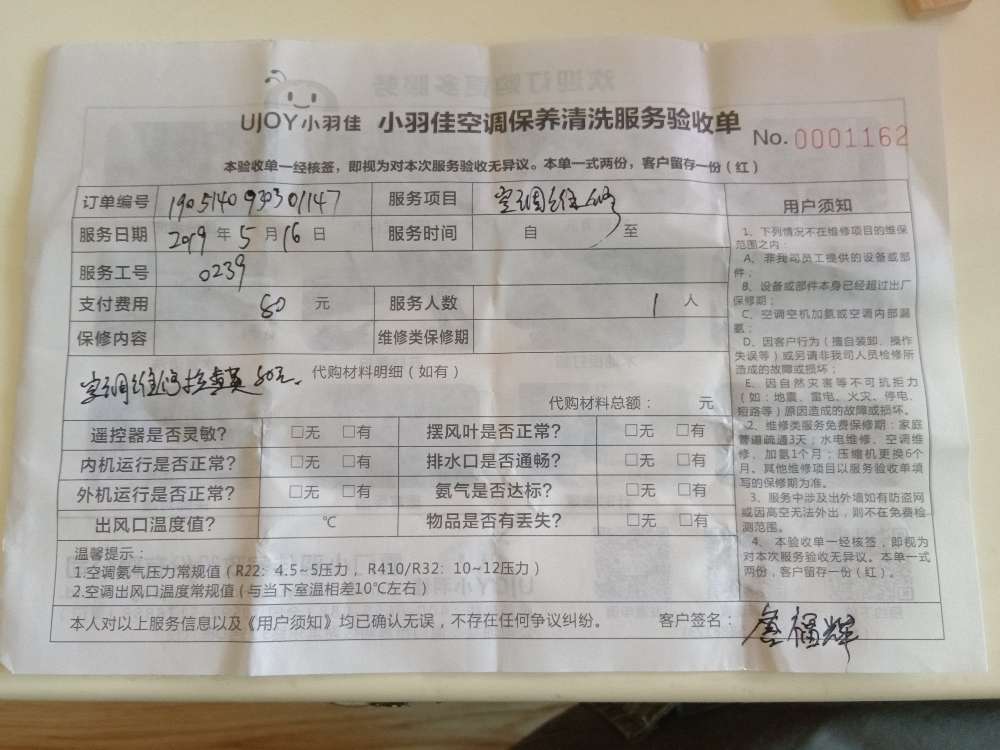 UJOY小羽佳 小羽佳空调保养清洗服务验收单
No. 0001162
本验收单一经核签，即视为对本次服务验收无异议。本单一式两份，客户留存一份（红）
订单编号 190514093030 1147 服务项目 空调维修
服务日期 2019 年 5 月 16 日 服务时间 自 至
服务工号 0239
支付费用 80 元 服务人数 1 人
保修内容 维修类保修期
空调维修检查费80元. 代购材料明细（如有）
代购材料总额： 元
遥控器是否灵敏？ □无 □有 摆风叶是否正常？ □无 □有
内机运行是否正常？ □无 □有 排水口是否通畅？ □无 □有
外机运行是否正常？ □无 □有 氨气是否达标？ □无 □有
出风口温度值？ ℃ 物品是否有丢失？ □无 □有
温馨提示：
1.空调氨气压力常规值（R22：4.5~5压力，R410/R32：10~12压力）
2.空调出风口温度常规值（与当下室温相差10℃左右）
本人对以上服务信息以及《用户须知》均已确认无误，不存在任何争议纠纷。 客户签名：
用户须知
1、下列情况不在维修项目的维保
范围之内：
A、非我司员工提供的设备或部
件；
B、设备或部件本身已经超过出厂
保修期；
C、空调空机加氨或空调内部漏
氨；
D、因客户行为（擅自装卸、操作
失误等）或另请非我司人员检修所
造成的故障或损坏；
E、因自然灾害等不可抗拒力
（如：地震、雷电、火灾、停电、
短路等）原因造成的故障或损坏。
2、维修类服务免费保修期：家庭
管道疏通3天；水电维修、空调维
修、加氨1个月；压缩机更换6个
月。其他维修项目以服务验收单填
写的保修期为准。
3、服务中涉及出外墙如有防盗网
或因高空无法外出，则不在免费检
测范围。
4、本验收单一经核签，即视为
对本次服务验收无异议。本单一式
两份，客户留存一份（红）。